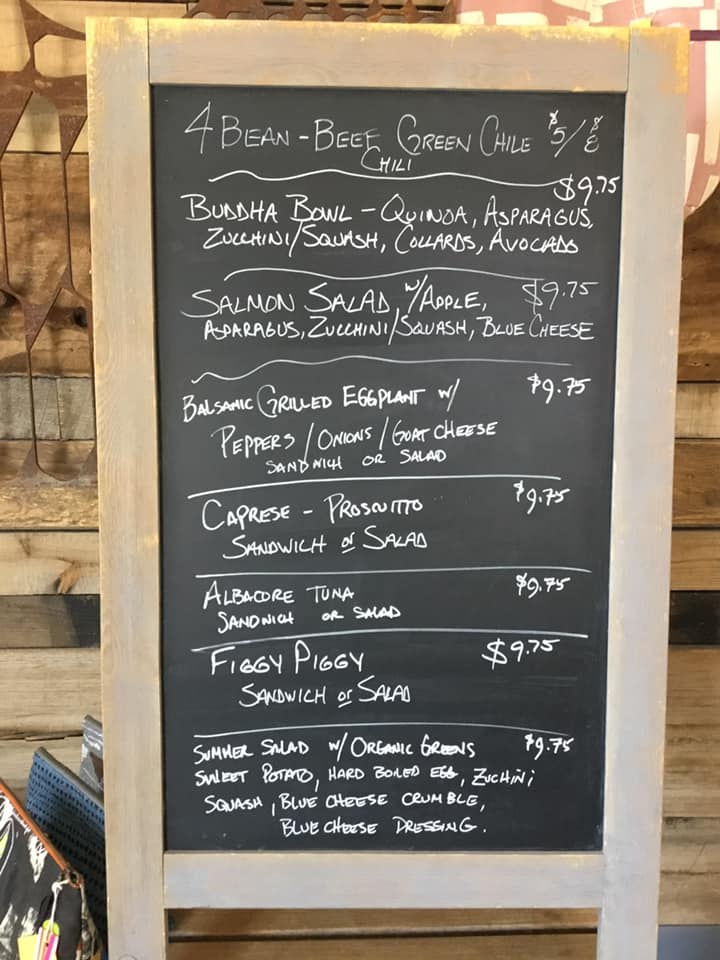 4 BEAN - BEEF GREEN CHILE $5/$8
CHILI
$9.75
BUDDHA BOWL - QUINOA, ASPARAGUS,
ZUCCHINI/SQUASH, COLLARDS, AVOCADO
SALMON SALAD W/APPLE, $9.75
ASPARAGUS, ZUCCHINI/SQUASH, BLUE CHEESE
BALSAMIC GRILLED EGGPLANT W/ $9.75
PEPPERS/ONIONS/GOAT CHEESE
SANDWICH OR SALAD
CAPRESE - PROSCUITTO $9.75
SANDWICH or SALAD
ALBACORE TUNA $9.75
SANDWICH OR SALAD
FIGGY PIGGY $9.75
SANDWICH or SALAD
SUMMER SALAD W/ ORGANIC GREENS $9.75
SWEET POTATO, HARD BOILED EGG, ZUCHINI
SQUASH, BLUE CHEESE CRUMBLE,
BLUE CHEESE DRESSING.